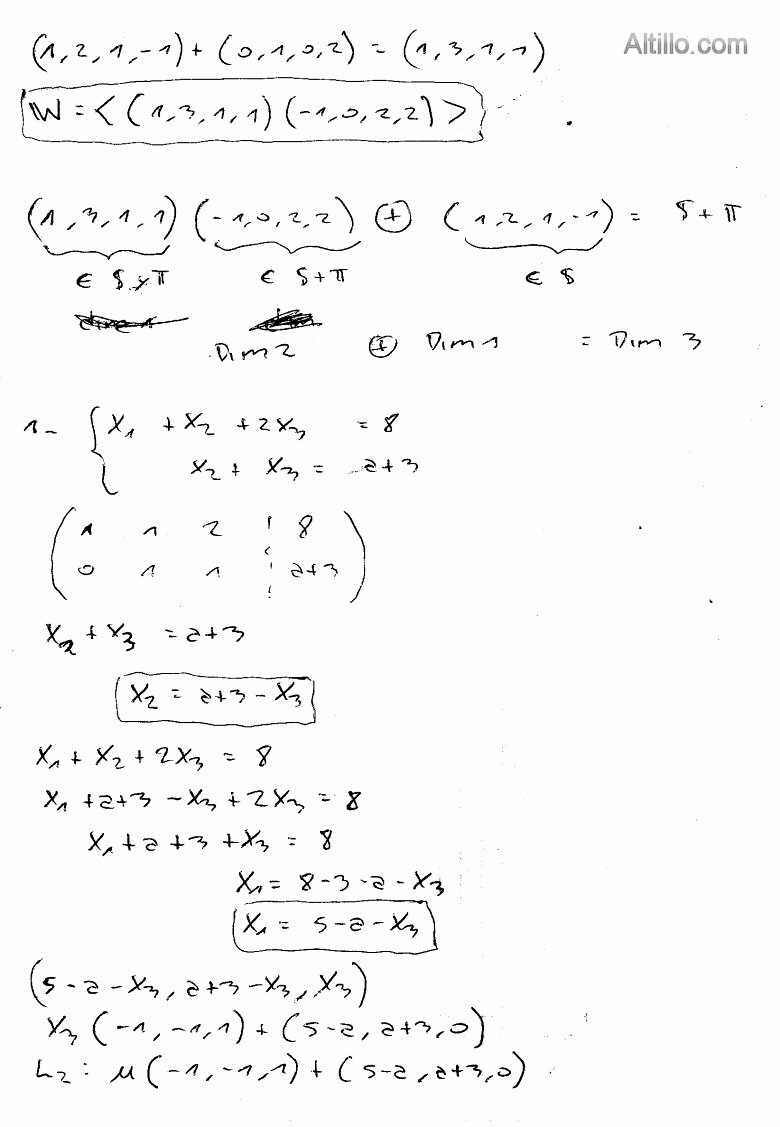 Altillo.com
(1,2,1,-1) + (0,1,0,2) = (1,3,1,1)
W = <(1,3,1,1)(-1,0,2,2)>
(1,3,1,1) (-1,0,2,2) ⊕ (1,2,1,-1) = S + π
∈ S y π ∈ S + π ∈ S
Dim 2 ⊕ Dim 1 = Dim 3
1- { X₁ + X₂ + 2X₃ = 8
X₂ + X₃ = a+3
( 1 1 2 ¦ 8
0 1 1 ¦ a+3 )
X₂ + X₃ = a+3
X₂ = a+3 - X₃
X₁ + X₂ + 2X₃ = 8
X₁ + a+3 - X₃ + 2X₃ = 8
X₁ + a + 3 + X₃ = 8
X₁ = 8-3-a-X₃
X₁ = 5-a-X₃
(5-a-X₃, a+3-X₃, X₃)
X₃ (-1,-1,1) + (5-a, a+3, 0)
L₂ : μ (-1,-1,1) + (5-a, a+3, 0)